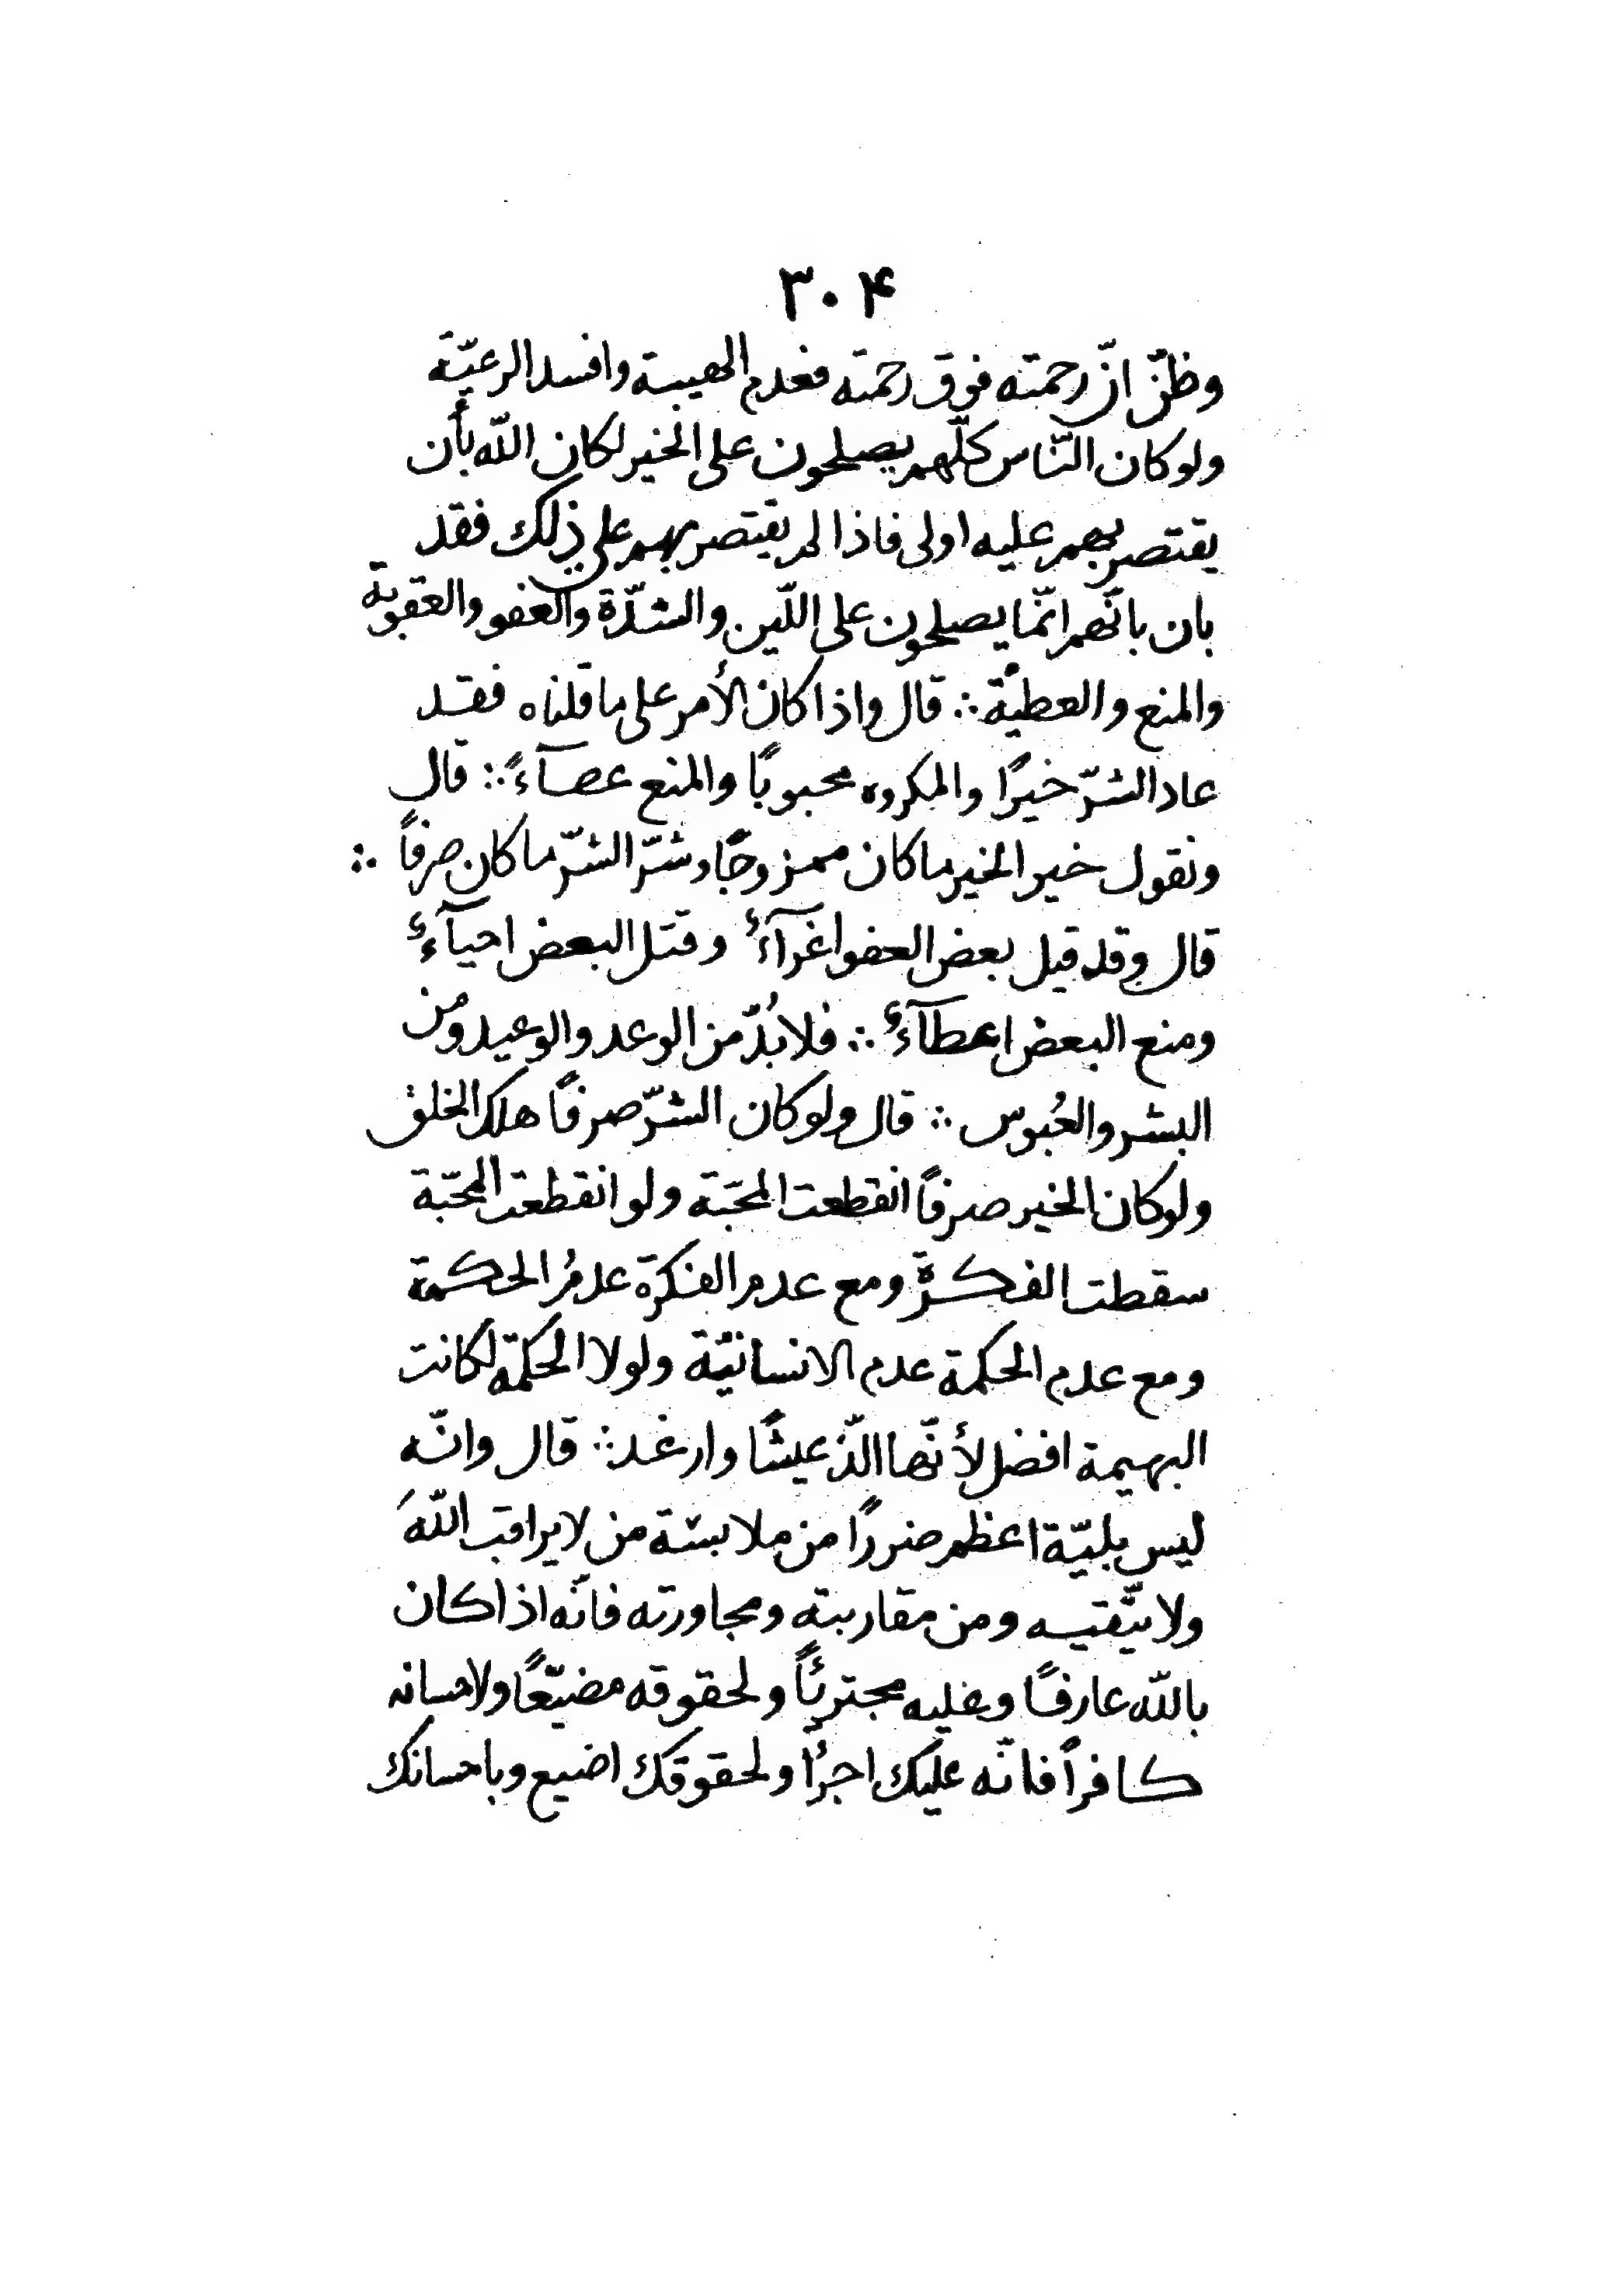 ٣٠۴
وظنّ انّ رحمته فوق رحمته فعدم الهيبة وافسد الرعيّة
ولو كان النّاس كلّهم يصلحون على الخير لكان اللّه بأن
يقتصر بهم عليه اولى فاذا لم يقتصر بهم على ذلك فقد
بان بانّهم انّما يصلحون على اللّين والشدّة والعفو والعقوبة
والمنع والعطيّة ∴ قال واذا كان الأمر على ما قلناه فقد
عاد الشرّ خيرًا والمكروه محبوبًا والمنع عصآءً ∴ قال
ونقول خير الخير ما كان ممزوجًا وشرّ الشرّ ما كان صرفًا ∴
قال وقد قيل بعض العفو اغرآءٌ وقتل البعض احيآءٌ
ومنع البعض اعطآءٌ ∴ فلا بُدّ من الوعد والوعيد ومن
البشر والعُبوس ∴ قال ولو كان الشرّ صرفًا هلك الخلق
ولو كان الخير صرفًا انقطعت المحَبة ولو انقطعت المحبّة
سقطت الفكرة ومع عدم الفكرة عدمُ الحكمة
ومع عدم الحكمة عدم الانسانيّة ولولا الحكمة لكانت
البهيمة افضل لأنّها الذّ عيشًا وارغد ∴ قال وانّه
ليس بليّة اعظم ضررًا من ملابسة من لا يراقب اللّهَ
ولا يتّقيه ومن مقاربته ومجاورته فانّه اذا كان
باللّه عارفًا وعليه مجترئًا ولحقوقه مضيّعًا ولاحسانه
كافرًا فانّه عليك اجرُأ ولحقوقك اضيع وباحسانك